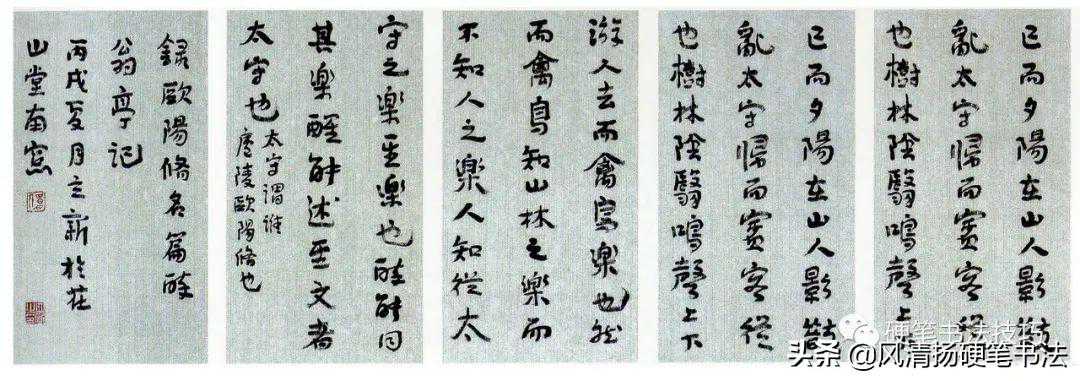 已而夕陽在山人影散
亂太守歸而賓客從
也樹林陰翳鳴聲上
已而夕陽在山人影散
亂太守歸而賓客從
也樹林陰翳鳴聲上下
游人去而禽鳥樂也然
而禽鳥知山林之樂而
不知人之樂人知從太
守之樂至樂也醉能同
其樂醒能述至文者
太守也
太守謂誰
廬陵歐陽修也
錄歐陽修名篇醉
翁亭記
丙戌夏月立新於莊
山堂南窗
硬笔书法技巧
头条 @风清扬硬笔书法